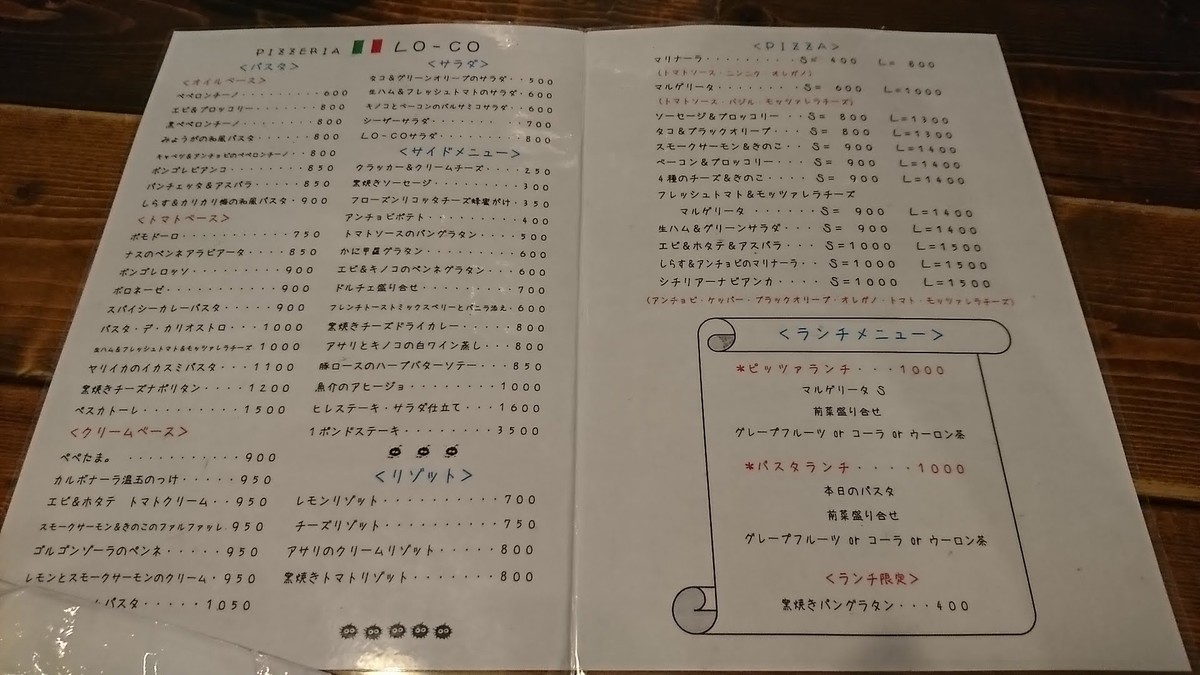 PIZZERIA LO-CO
<パスタ>
<オイルベース>
ペペロンチーノ・・・・・・・・600
エビ&ブロッコリー・・・・・・・800
黒ペペロンチーノ・・・・・・・800
みょうがの和風パスタ・・・・・・800
キャベツ&アンチョビのペペロンチーノ・・800
ボンゴレビアンコ・・・・・・・850
パンチェッタ&アスパラ・・・・・850
しらす&カリカリ梅の和風パスタ・900
<トマトベース>
ポモドーロ・・・・・・・・・・750
ナスのペンネアラビアータ・・・・850
ボンゴレロッソ・・・・・・・・900
ボロネーゼ・・・・・・・・・・900
スパイシーカレーパスタ・・・・・900
パスタ・デ・カリオストロ・・・1000
生ハム&フレッシュトマト&モッツァレラチーズ 1000
ヤリイカのイカスミパスタ・・・1100
窯焼きチーズナポリタン・・・・1200
ペスカトーレ・・・・・・・・・1500
<クリームベース>
ぺぺたま。・・・・・・・・・・・900
カルボナーラ温玉のっけ・・・・・950
エビ&ホタテ トマトクリーム・・950
スモークサーモン&きのこのファルファッレ 950
ゴルゴンゾーラのペンネ・・・・・950
レモンとスモークサーモンのクリーム・950
パスタ・・・・・1050
<サラダ>
タコ&グリーンオリーブのサラダ・・500
生ハム&フレッシュトマトのサラダ・600
キノコとベーコンのバルサミコサラダ・・600
シーザーサラダ・・・・・・・・700
LO-COサラダ・・・・・・・・・800
<サイドメニュー>
クラッカー&クリームチーズ・・・・250
窯焼きソーセージ・・・・・・・・300
フローズンリコッタチーズ蜂蜜がけ・350
アンチョビポテト・・・・・・・・400
トマトソースのパングラタン・・・・500
かに甲羅グラタン・・・・・・・・600
エビ&キノコのペンネグラタン・・・600
ドルチェ盛り合せ・・・・・・・・700
フレンチトーストミックスベリーとバニラ添え・600
窯焼きチーズドライカレー・・・・・800
アサリとキノコの白ワイン蒸し・・・800
豚ロースのハーブバターソテー・・・850
魚介のアヒージョ・・・・・・・・1000
ヒレステーキ・サラダ仕立て・・・1600
1ポンドステーキ・・・・・・・・3500
<リゾット>
レモンリゾット・・・・・・・・・700
チーズリゾット・・・・・・・・・750
アサリのクリームリゾット・・・・・800
窯焼きトマトリゾット・・・・・・・800
<PIZZA>
マリナーラ・・・・・・・・・S= 400 L= 800
(トマトソース・ニンニク・オレガノ)
マルゲリータ・・・・・・・・S= 600 L=1000
(トマトソース・バジル・モッツァレラチーズ)
ソーセージ&ブロッコリー・・S= 800 L=1300
タコ&ブラックオリーブ・・・S= 800 L=1300
スモークサーモン&きのこ・・S= 900 L=1400
ベーコン&ブロッコリー・・・S= 900 L=1400
4種のチーズ&きのこ・・・・S= 900 L=1400
フレッシュトマト&モッツァレラチーズ
マルゲリータ・・・・・・・S= 900 L=1400
生ハム&グリーンサラダ・・・S= 900 L=1400
エビ&ホタテ&アスパラ・・・S=1000 L=1500
しらす&アンチョビのマリナーラ・・S=1000 L=1500
シチリアーナビアンカ・・・・S=1000 L=1500
(アンチョビ・ケッパー・ブラックオリーブ・オレガノ・トマト・モッツァレラチーズ)
<ランチメニュー>
*ピッツァランチ・・・1000
マルゲリータ S
前菜盛り合せ
グレープフルーツ or コーラ or ウーロン茶
*パスタランチ・・・・1000
本日のパスタ
前菜盛り合せ
グレープフルーツ or コーラ or ウーロン茶
<ランチ限定>
窯焼きパングラタン・・・400